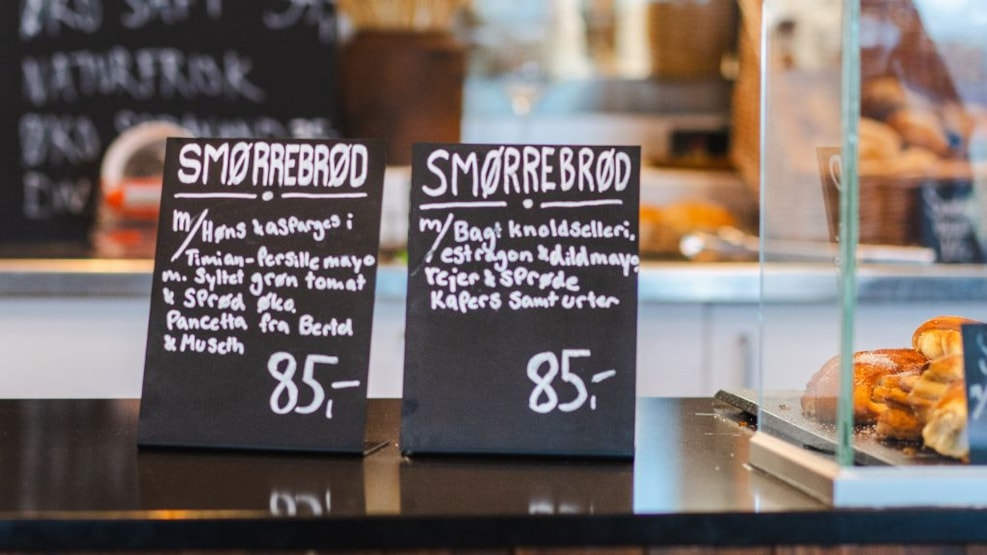 ØKO SAFT
NATURFRISK
ØKO
SMØRREBRØD
m/Høns & asparges i
Timian-Persille mayo
m. Syltet grøn tomat
& Sprød Øko.
Pancetta fra Bertel
& Museth
85,-
SMØRREBRØD
m/Bagt knoldselleri,
estragon & dildmayo
rejer & sprøde
Kapers samt urter
85,-